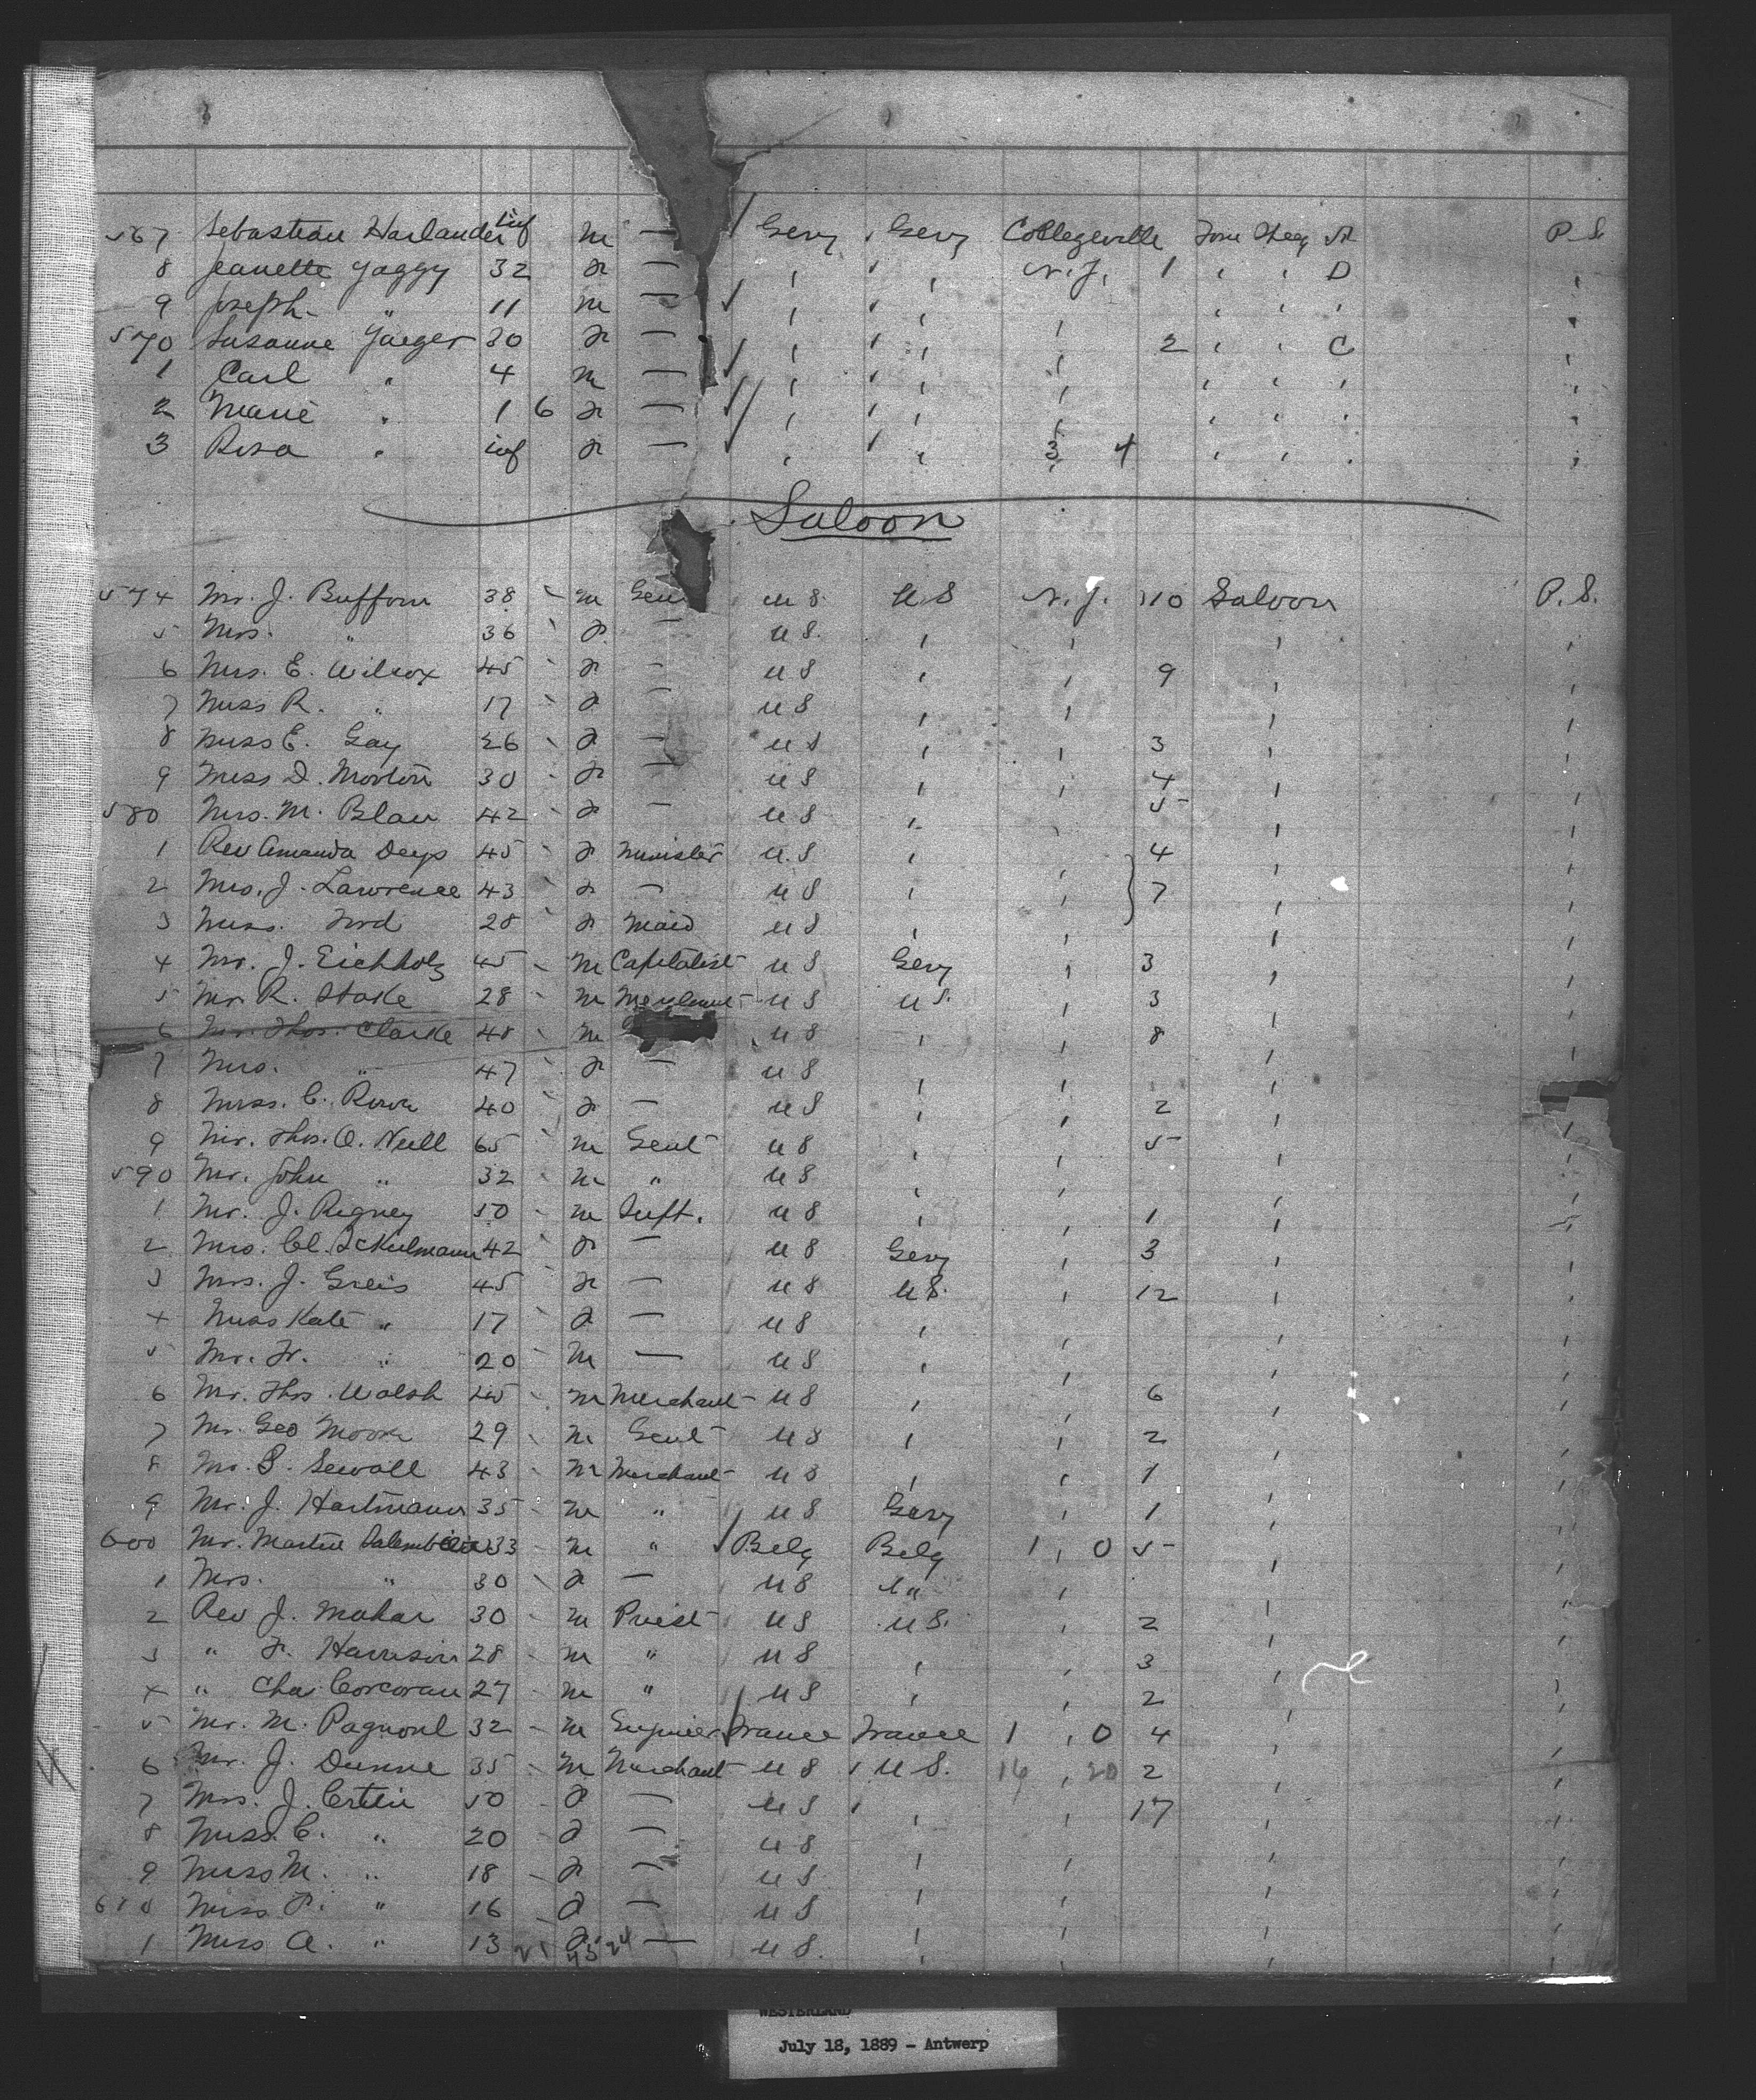 567 Sebastian Harlander inf m — Gery Gery Collegeville P.S.
8 Jeanette Jaggy 32 f — " " N.J. 1 " " D "
9 Joseph " 11 m — " " " " "
570 Susanne Jaeger 30 f — " " " 2 " " C "
1 Carl " 4 m — " " " " " " "
2 Marie " 1 6 f — " " " " " " "
3 Rosa " inf f — " " 3 4 " " " "
Saloon
574 Mr. J. Buffom 38 - m U S U S N.J. 10 Saloon P.S.
5 Mrs. " 36 - f — U S. " " " "
6 Mrs. E. Wilcox 45 - f — U S " " 9 " "
7 Miss R. " 17 - f — U S " " " "
8 Miss E. Gay 26 - f — U S " " 3 " "
9 Miss D. Morton 30 - f — U S " " 4 " "
580 Mrs. M. Blau 42 - f — U S " " 5 " "
1 Rev Amanda Deyo 45 - f Minister U.S " " 4 " "
2 Mrs. J. Lawrence 43 - f — U S " " 7 " "
3 Miss. 28 - f Maid U S " " " "
4 Mr. J. Eichholz 45 - m Capitalist U S Gery " 3 " "
5 Mr. R. Stake 28 - m Merchant U S U S. " 3 " "
6 Mr. Thos. Clarke 48 - m U S " " 8 " "
7 Mrs. " 47 - f — U S " " " "
8 Miss. C. 40 - f — U S " " 2 " "
9 Mr. Thos. O. Neill 65 - m Gent U S " " 5 " "
590 Mr. John " 32 - m " U S " " " "
1 Mr. J. Rigney 50 - m Supt. U S " " 1 " "
2 Mrs. Cl. 42 - f — U S Gery " 3 " "
3 Mrs. J. Greis 45 - f — U S U S. " 12 " "
4 Miss Kate " 17 - f — U S " " " "
5 Mr. Fr. " 20 - m — U S " " " "
6 Mr. Thos. Walsh 45 - m Merchant U S " " 6 " "
7 Mr. Geo Moore 29 - m Gent U S " " 2 " "
8 Mr. S. Sewall 43 - m Merchant U S " " 1 " "
9 Mr. J. Hartmann 35 - m " U S Gery " 1 " "
600 Mr. Martin 33 - m " Belg Belg 1 " 0 5 " "
1 Mrs. " 30 - f — U S " " " "
2 Rev J. Mahar 30 - m Priest U S U S. " 2 " "
3 " F. Harrison 28 - m " U S " " 3 " "
4 " Cha. Corcoran 27 - m " U S " " 2 " "
5 Mr. M. Pagnoul 32 - m Engineer France France 1 " 0 4 " "
6 Mr. J. Dunne 35 - m Merchant U S U S. 16 " 20 2 " "
7 Mrs. J. 50 - f — U S " " 17 " "
8 Miss. C. " 20 - f — U S " " " "
9 Miss M. " 18 - f — U S " " " "
610 Miss P. " 16 - f — U S " " " "
1 Miss A. " 13 f — U S. " " " "
WESTERLAND
July 18, 1889 - Antwerp